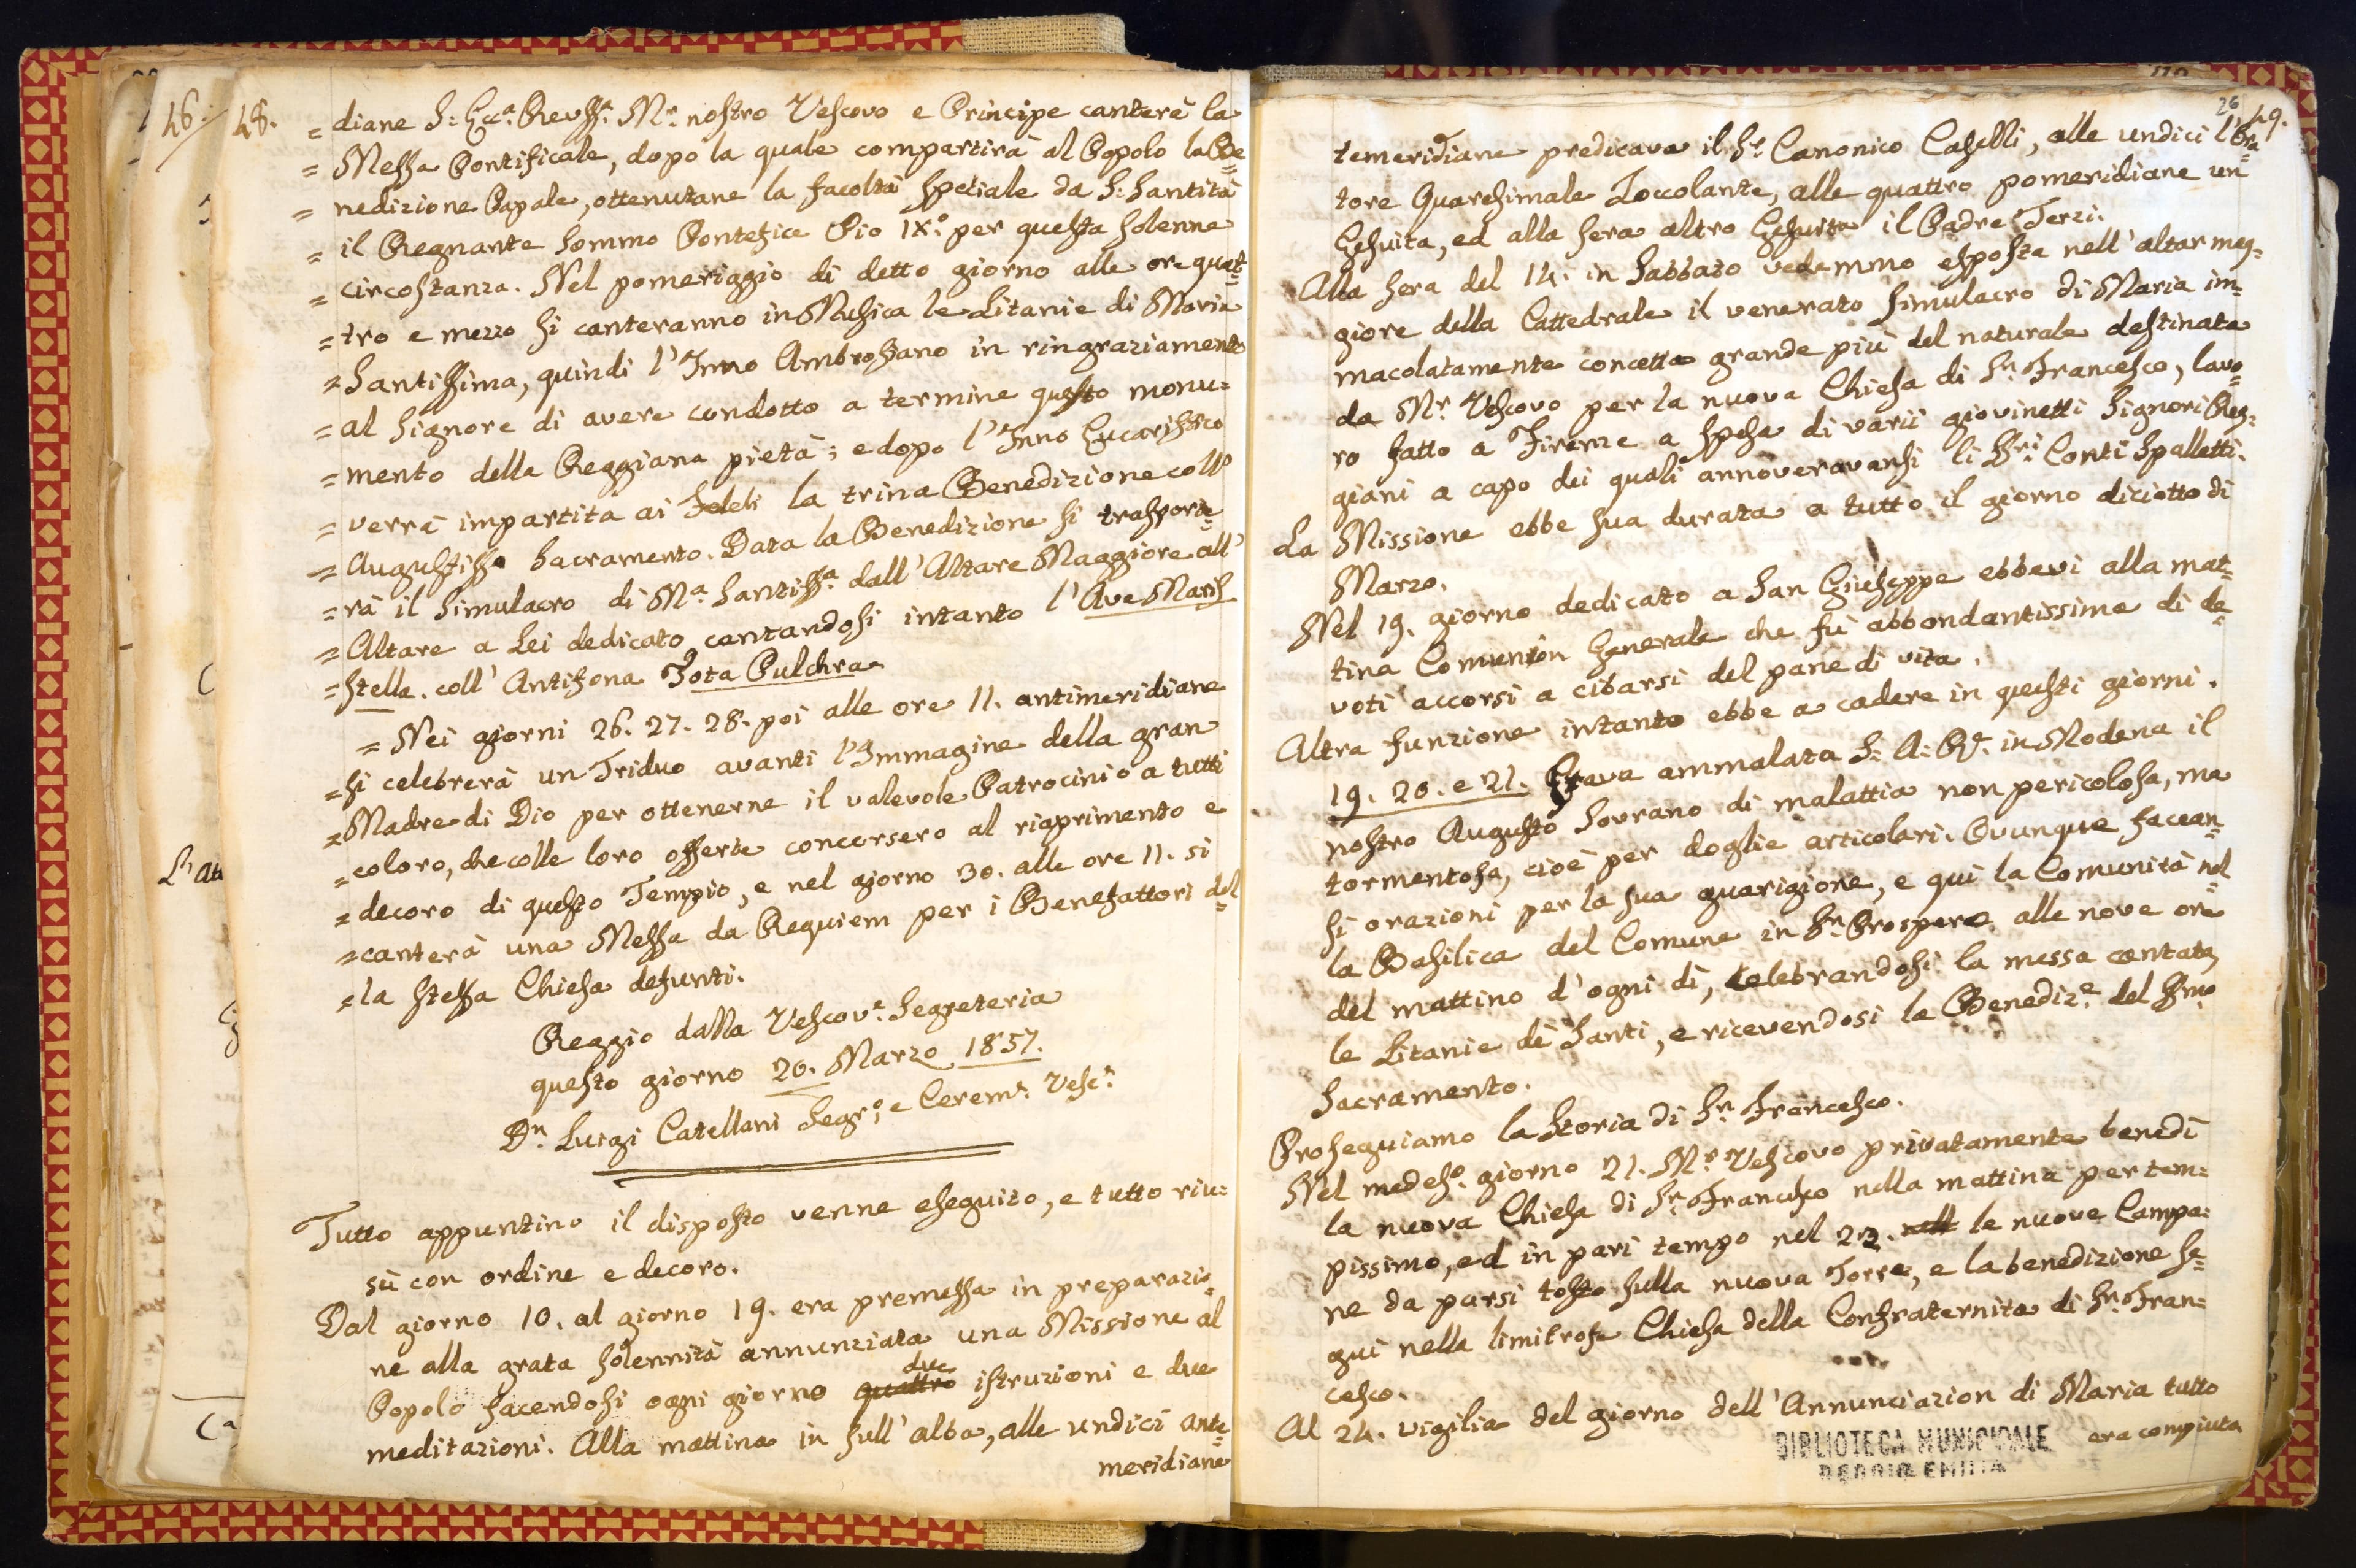 46.
48.
= diane S: Ecc.a Revss.a M.r nostro Vescovo e Principe canterà la
= Messa Pontificale, dopo la quale compartirà al Popolo la Be=
= nedizione Papale, ottenutane la facoltà speciale da S: Santità
= il Regnante Sommo Pontefice Pio IX.o per questa solenne
= circostanza. Nel pomeriggio di detto giorno alle ore quat=
= tro e mezzo si canteranno in Musica le Litanie di Maria
= Santissima, quindi l'Inno Ambrosiano in ringraziamento
= al Signore di avere condotto a termine questo monu=
= mento della Reggiana pietà; e dopo l'Inno Eucaristico
= verrà impartita ai Fedeli la trina Benedizione coll'
= Augustiss.o Sacramento. Data la Benedizione si trasporte=
= rà il Simulacro di M.a Santiss.a dall'Altare Maggiore all'
= Altare a Lei dedicato cantandosi intanto l'Ave Maris
= stella. coll'Antifona Tota Pulchra.
= Nei giorni 26. 27. 28. poi alle ore 11. antimeridiane
= si celebrerà un Triduo avanti l'Immagine della gran
= Madre di Dio per ottenerne il valevole Patrocinio a tutti
= coloro, che colle loro offerte concorsero al riaprimento e
= decoro di questo Tempio, e nel giorno 30. alle ore 11. si
= canterà una Messa da Requiem per i Benefattori del=
= la stessa Chiesa defunti.
Reggio dalla Vescov.e Segreteria
questo giorno 20. Marzo 1857.
D.n Luigi Catellani Segr.o, e Cerem.e Vesc.e
Tutto appuntino il disposto venne eseguito, e tutto riu=
sù con ordine e decoro.
Dal giorno 10. al giorno 19. era premessa in preparazio=
ne alla grata solennità annunziata una Missione al
Popolo facendosi ogni giorno quattro due istruzioni e due
meditazioni. Alla mattina in sull'alba, alle undici ante=
meridiane
26
49.
temeridiane predicava il S.r Canonico Caselli, alle undici l'Ora=
tore Quaresimale Zoccolante, alle quattro pomeridiane un
Gesuita, ed alla sera altro Gesuita il Padre Terzi.
Alla sera del 14. in Sabbato vedemmo esposta nell'altar mag=
giore della Cattedrale il venerato Simulacro di Maria im=
macolatamente concetta grande più del naturale destinata
da M.r Vescovo per la nuova Chiesa di S.n Francesco, lavo=
ro fatto a Firenze a spesa di varii giovinetti Signori Reg=
giani a capo dei quali annoveravansi li S.ri Conti Spalletti.
La Missione ebbe sua durata a tutto il giorno diciotto di
Marzo.
Nel 19. giorno dedicato a San Giuseppe ebbevi alla mat=
tina Comunion Generale che fù abbondantissima di de=
voti accorsi a cibarsi del pane di vita.
Altra funzione intanto ebbe a cadere in questi giorni.
19. 20. e 21. Stava ammalata S: A: R.e in Modena il
nostro Augusto Sovrano di malattia non pericolosa, ma
tormentosa, cioè per doglie articolari. Ovunque facean=
si orazioni per la sua guarigione, e quì la Comunità nel=
la Basilica del Comune in S.n Prospero, alle nove ore
del mattino d'ogni dì, celebrandosi la messa cantata,
le Litanie dè Santi, e ricevendosi la Benediz.e del SSmo
Sacramento.
Proseguiamo la Storia di S.n Francesco.
Nel medes.o giorno 21. M.r Vescovo privatamente benedì
la nuova Chiesa di S.n Francesco nella mattina per tem=
pissimo, ed in pari tempo nel 22. le nuove Campa=
ne da porsi tosto sulla nuova Torre, e la benedizione se=
guì nella limitrofa Chiesa della Confraternita di S.n Fran=
cesco.
Al 24. vigilia del giorno dell'Annunciazion di Maria tutto
era compiuta
BIBLIOTECA MUNICIPALE
REGGIO EMILIA